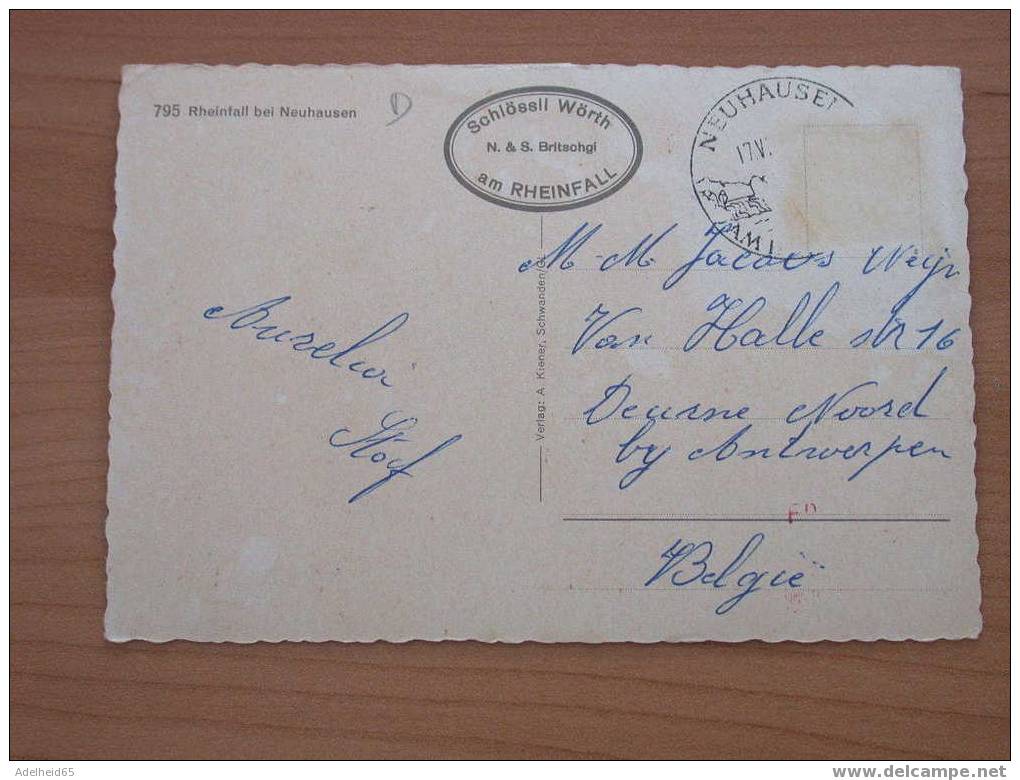 795 Rheinfall bei Neuhausen
D
Schlössli Wörth
N. & S. Britschgi
am RHEINFALL
NEUHAUSE
17.V
M. M. Jacobs
Van Halle str 16
Deurne Noord
by Antwerpen
België
Aurelia
Stoef
Verlag: A. Kiener, Schwanden/Gl.
Adelheid65
www.delcampe.net